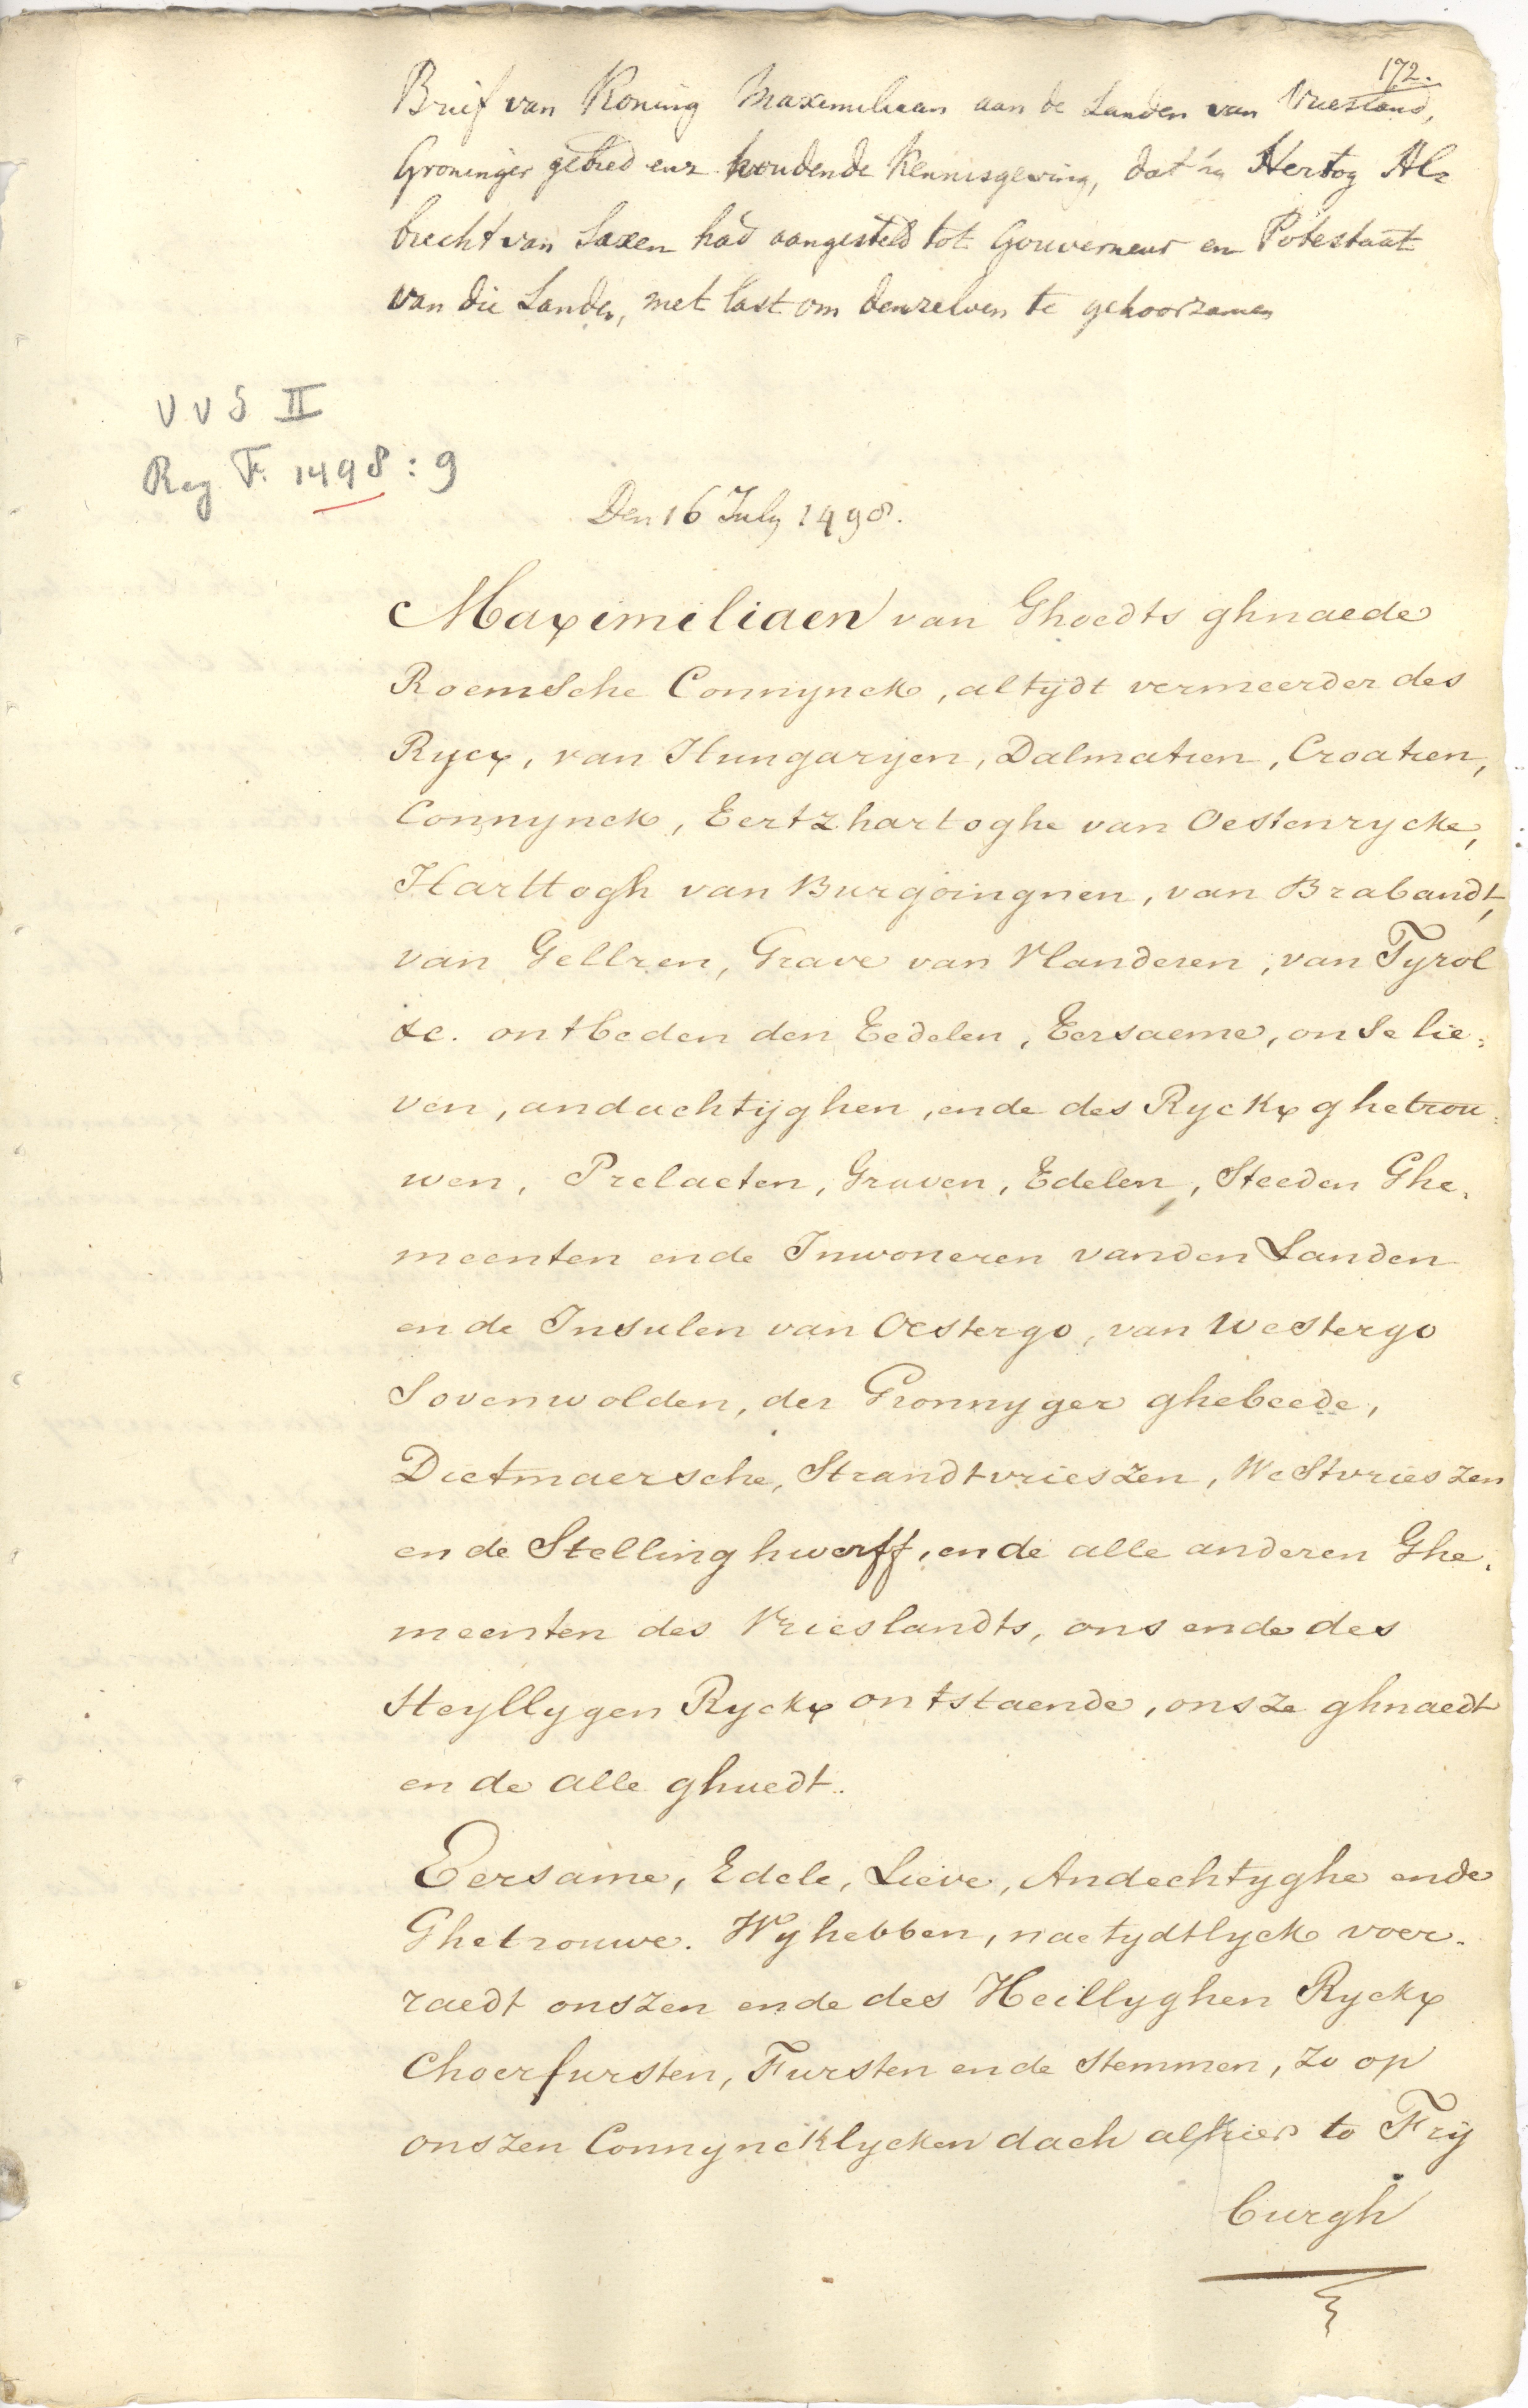 172.
Brief van Koning Maximiliaan aan de Landen van Vriesland,
Groninger gebied enz houdende Kennisgeving, dat hij Hertog Al=
brecht van Saxen had aangesteld tot Gouverneur en Potestaat
van die Landen, met last om denzelven te gehoorzamen
V V S II
Reg F. 1498 : 9
Den 16 July 1498.
Maximiliaen van Ghoedts ghnaede
Roemsche Connynck, altydt vermeerder des
Rycx, van Hungaryen, Dalmatien, Croatien,
Connynck, Eertzhartoghe van Oestenrycke,
Harttogh van Burgoingnen, van Brabandt,
van Gellren, Grave van Vlanderen, van Tyrol
&c. ontbeden den Eedelen, Eersaeme, onse lie=
ven, andachtijghen, ende des Ryckx ghetrou=
wen, Prelaeten, Graven, Edelen, Steeden Ghe=
meenten ende Inwoneren vanden Landen
ende Insulen van Oestergo, van Westergo
Sovenwolden, der Gronnyger ghebeede,
Dietmaersche, Strandtvrieszen, Westvrieszen
ende Stellinghwerff, ende alle anderen Ghe=
meenten des Vrieslandts, ons ende des
Heyllygen Ryckx ontstaende, onsze ghnaedt
ende alle ghuedt.
Eersame, Edele, Lieve, Andechtyghe ende
Ghetrouwe. Wy hebben, nae tydtlyck voer=
raedt onszen ende des Heillyghen Ryckx
Choerfursten, Fursten ende Stemmen, zo op
onszen Connyncklycken dach alhier to Frij
burgh